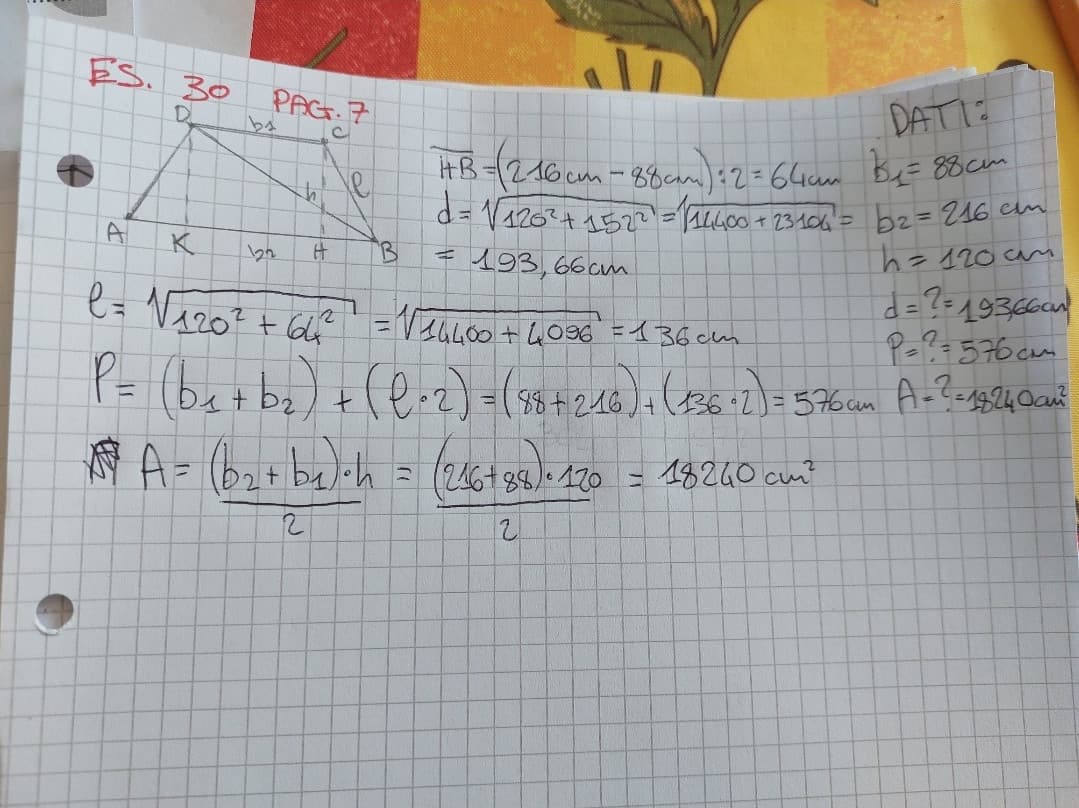 ES. 30 PAG. 7
D b1 C
h l
A K b2 H B
HB = (216cm - 88cm) : 2 = 64cm
d = √120² + 152² = √14400 + 23104 =
= 193,66cm
DATI:
b1 = 88cm
b2 = 216 cm
h = 120 cm
d = ? = 193,66cm
P = ? = 576 cm
A = ? = 18240cm²
l = √120² + 64² = √14400 + 4096 = 136 cm
P = (b1 + b2) + (l · 2) = (88 + 216) + (136 · 2) = 576cm
A = (b2 + b1) · h / 2 = (216 + 88) · 120 / 2 = 18240 cm²